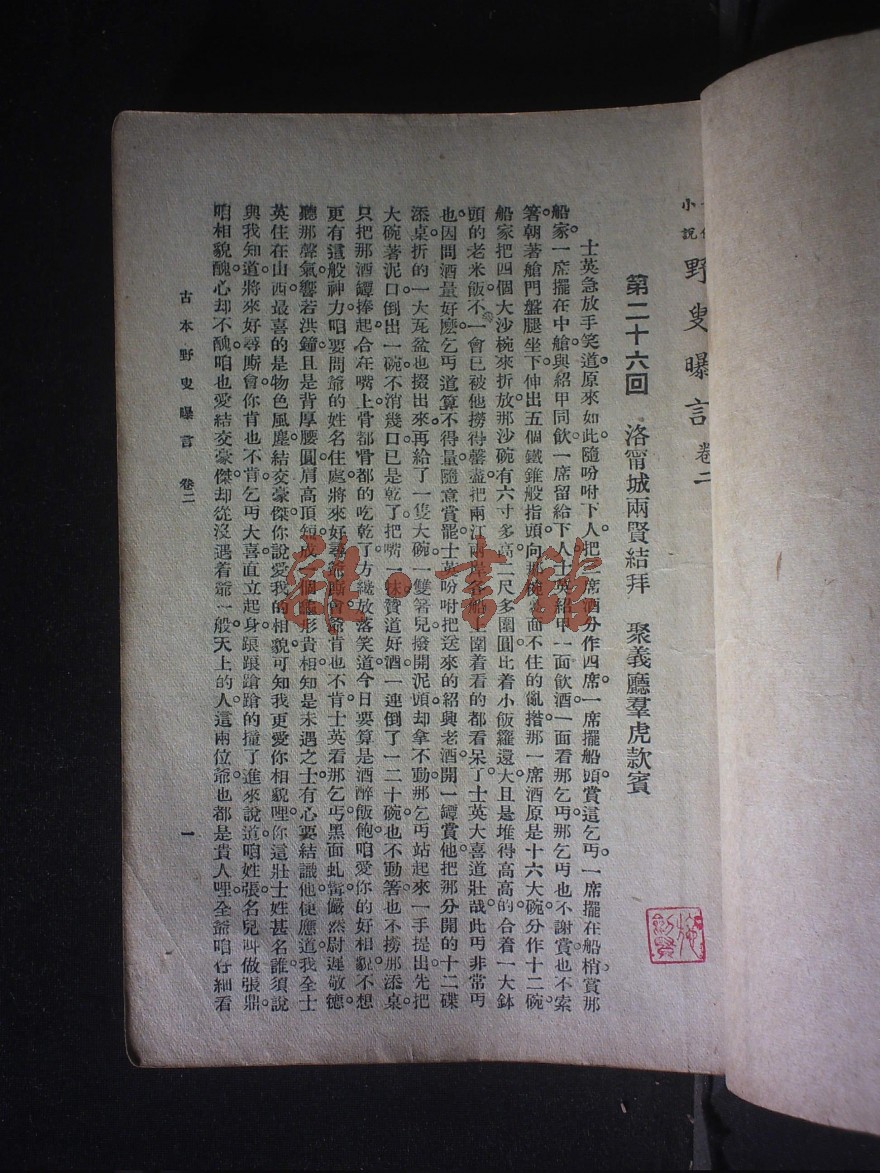 小說
野叟曝言 卷二
第二十六回 洛甯城兩賢結拜 聚義廳羣虎款賓
士英急放手笑道原來如此隨吩咐下人把二席酒分作四席一席擺船頭賞這乞丐一席擺在船梢賞那
船家一席擺在中艙與紹甲同飲一席留給下人士英紹甲一面飲酒一面看那乞丐那乞丐也不謝賞也不索
箸朝著艙門盤腿坐下伸出五個鐵錐般指頭向那碗面不住的亂撈那一席酒原是十六大碗分作十二碗
船家把四個大沙碗來折放那沙碗有六寸多高二尺多圍圓比着小飯籮還大且是堆得高高的合着一大鉢
頭的老米飯不一會已被他撈得罄盡把兩江兩船上圍着看的都看呆了士英大喜道壯哉此丐非常丐
也因問酒量好麽乞丐道算不得量隨意賞罷士英吩咐把送來的紹興老酒開一罈賞他把那分開的十二碟
添桌折的一大瓦盆也掇出來再給了一隻大碗一雙箸兒撥開泥頭却拿不動那乞丐站起來一手提出先把
大碗著泥口倒出一碗不消幾口已是乾了把嘴一抹贊道好酒一連倒了一二十碗也不動箸也不撈那添桌
只把那酒罈捧起合在嘴上骨都骨都的吃乾了方纔放落笑道今日要算是酒醉飯飽咱愛你的好相貌不想
更有這般神力咱要問爺的姓名住處將來好尋爺廝會爺肯也不肯士英看那乞丐黑面虬髯儼然尉遲敬德
聽那聲氣響若洪鐘且是背厚腰圓肩高頂短成一個形貴相知是未遇之士有心要結識他便應道我全士
英住在山西最喜的是物色風塵結交豪傑你說愛我的相貌可知我更愛你相貌哩你這壯士姓甚名誰須說
與我知道將來好尋廝會你肯也不肯乞丐大喜直立起身踉踉蹌蹌的撞了進來說道咱姓張名兒叫做張鼎
咱相貌醜心却不醜咱也愛結交豪傑却從沒遇着爺一般天上的人這兩位爺也都是貴人哩全爺咱仔細看
古本野叟曝言 卷二 一
雜·書館